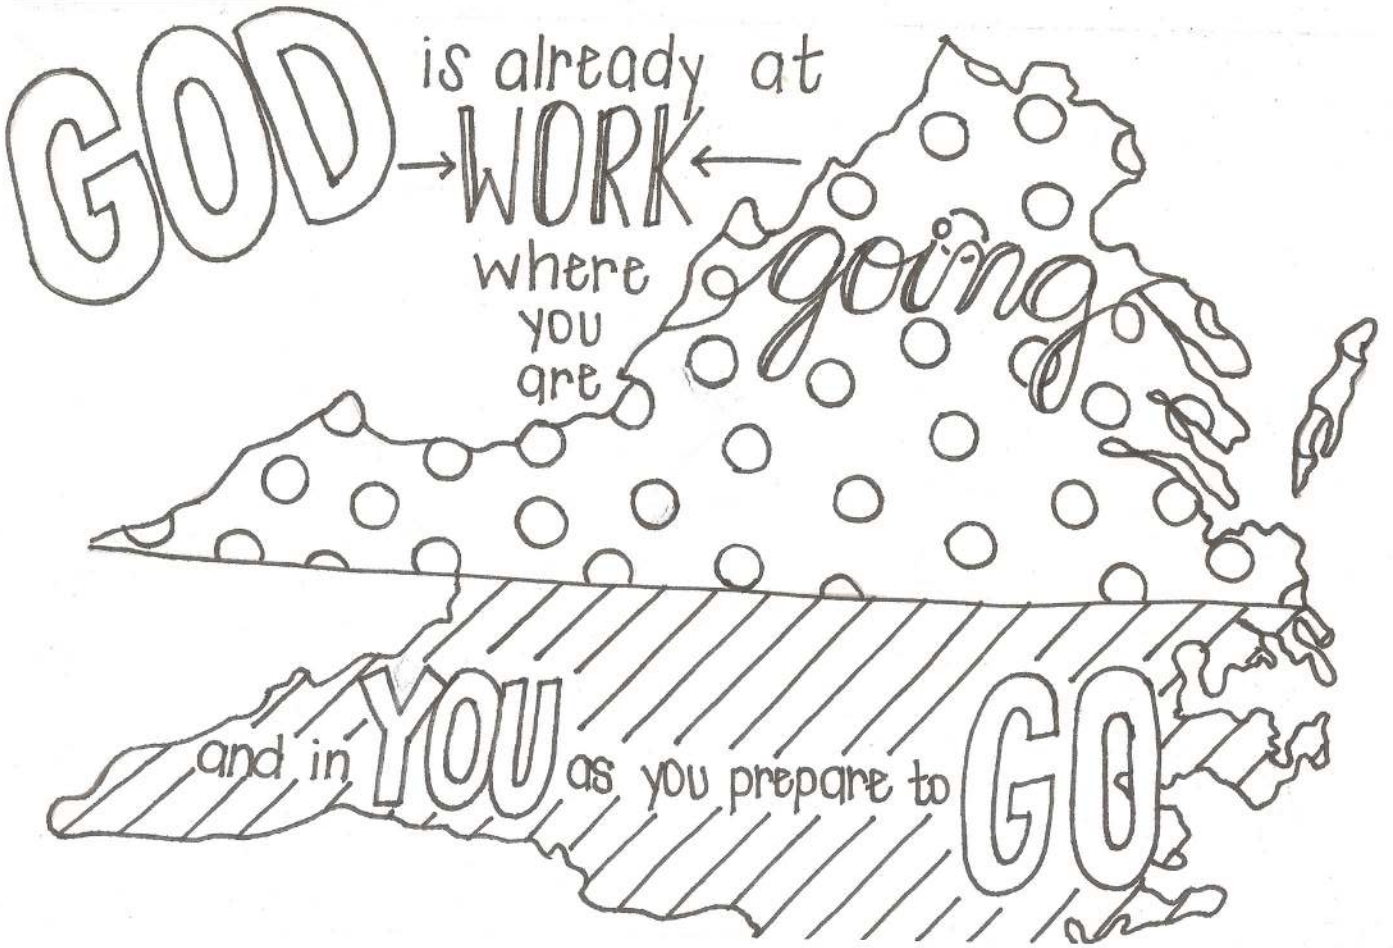 GOD is already at
WORK
where
you
are
going
and in YOU as you prepare to GO